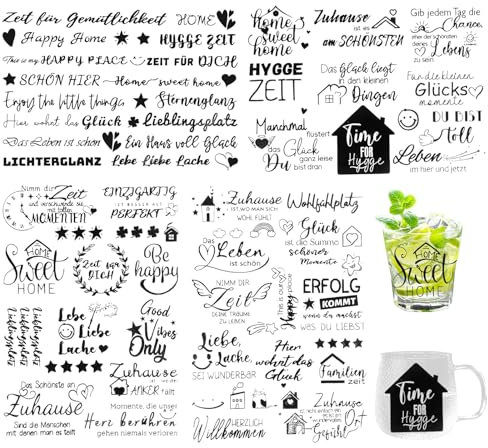 Zeit für Gemütlichkeit HOME
Happy Home HYGGE ZEIT
This is my HAPPY PLACE ZEIT FÜR DICH
SCHÖN HIER Home sweet home
Enjoy the little things Sternenglanz
Hier wohnt das Glück Lieblingsplatz
Das Leben ist schön Ein Haus voll Glück
LICHTERGLANZ Lebe Liebe Lache
Home
Sweet
home
HYGGE
ZEIT
Manchmal
flüstert
das Glück
ganz leise
Du bist dran
Zuhause
ist
am SCHÖNSTEN
Das Glück liegt
in den kleinen
Dingen
Time
FOR
Hygge
Gib jedem Tag die
Chance,
der schönste
deines
Lebens
zu sein.
Für die kleinen
Glücks
momente
DU BIST
toll
Leben
im hier und jetzt
Nimm dir
Zeit
und verschwende sie
mit tollen
MOMENTEN
EINZIGARTIG
IST BESSER ALS
PERFEKT
HOME
Sweet
HOME
Zeit
für
DICH
Be
happy
Lieblingsplatz
Lieblingsplatz
Lieblingsplatz
Lebe
Liebe
Lache
Good
Vibes
Only
Zuhause
ist wo dein
ANKER fällt
Das Schönste an
Zuhause
Sind die Menschen
mit denen man es teilt
Momente, die unser
Herz berühren
gehen niemals verloren
Zuhause
IST WO MAN SICH
WOHL FÜHLT
Das
Leben
ist schön
NIMM DIR
Zeit
DEINE TRÄUME
ZU LEBEN
Liebe,
Lache,
SEI WUNDERBAR
HERZLICH
Willkommen
Wohlfühlplatz
Glück
ist die Summe
schöner
Momente
This is our
Happy place
ERFOLG
KOMMT
wenn du machst
was DU LIEBST
Hier
wohnt das
Glück
Familien
zeit
Zuhause
ist nicht einfach ein
Ort
es ist ein
Gefühl
HOME
Sweet
HOME
Time
FOR
Hygge